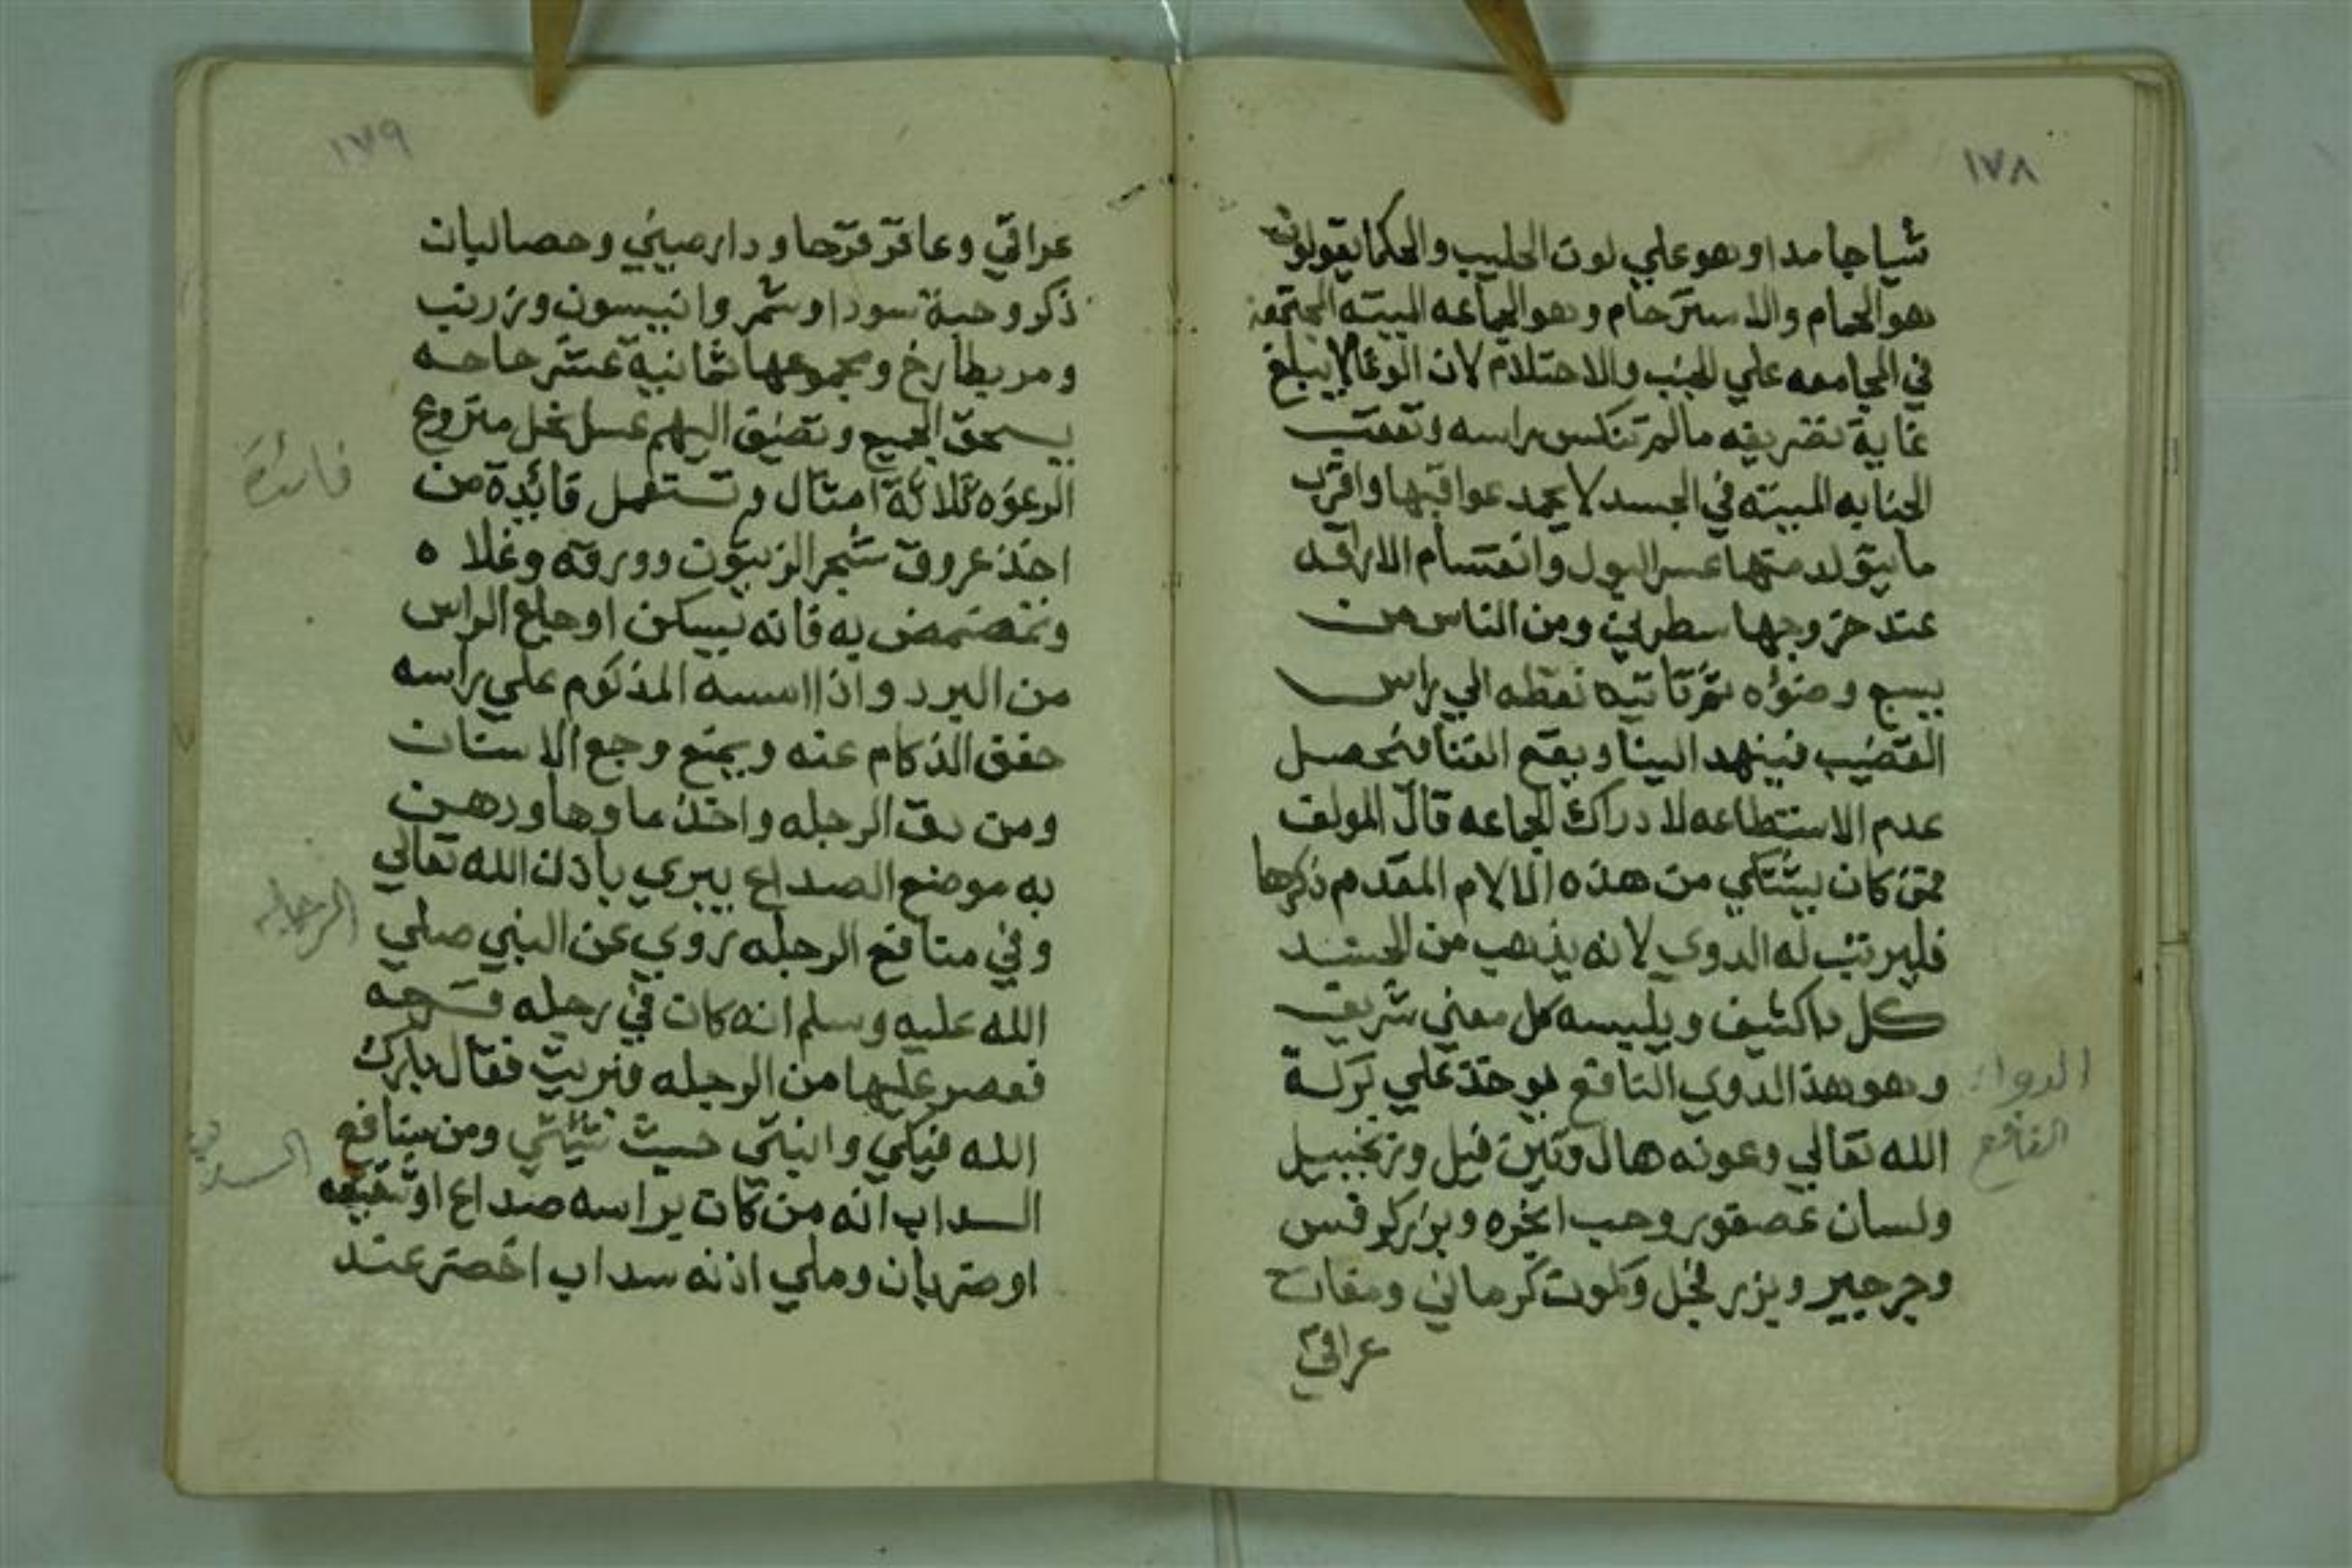 ١٧٨
شيا جامدا وهو علي لون الحليب والحكما يقولون
هو الحمام والاسترحام وهو الجماعه المبيته المجتمعه
في المجامعه علي الجنب والاحتلام لان الوعا لا يبلغ
غاية تضريفه مالم تنكس براسه وتعقب
الجنابه المبيته في الجسد لا يحمد عواقبها واقرب
ما يتولد منها عسر البول وانقسام الاراقه
عند خروجها سطرين ومن الناس من
يسبح وضوءه ثم تاتيه نقطه الي راس
القضيب
عدم الاستطاعه لادراك الجماعه قال المولف
فمتي كان يشتكي من هذه الالام المقدم ذكرها
فليرتب له الدوي لانه يذهب من الجسد
كل داكشف ويلبسه كل معني شريف
وهو هذا الدوي النافع يوخذ علي بركة
الله تعالي وعونه هال وتين فيل وزنجبيل
ولسان عصفور وحب انجره وبزر كرفس
وجرجير وبزر فجل وكمون كرماني ومقات
عراقي
الدواء
النافع
١٧٩
عراقي وعاقر قرحا ودارصيني وحصالبان
ذكر وحبة سودا وشمر وانيسون وزرنب
ومربطارخ ومجموعها ثمانية عشر حاجه
يسحق الجميع وتضيق اليهم عسل نحل منزوع
الرغوه ثلاثة امثال وتستعمل فائدة من
اخذ عروق شجر الزيتون وورقه وغلاه
وتمضمض به فانه يسكن اوجاع الراس
من البرد واذا اسسه المذكوم علي راسه
خفق الذكام عنه ويمنع وجع الاسنان
ومن دق الرجله واخذ ماوها ودهن
به موضع الصداع يبري باذن الله تعالي
وفي منافع الرجله روي عن النبي صلي
الله عليه وسلم انه كان في رجله قرحه
فعصر عليها من الرجله فبريت فقال بارك
الله فيكي وانبتي حيث شيتي ومن منافع
السداب انه من كان براسه صداع او شقيقه
او ضربان وملي اذنه سداب اخضر عند
فائدة
الرجله
السداب